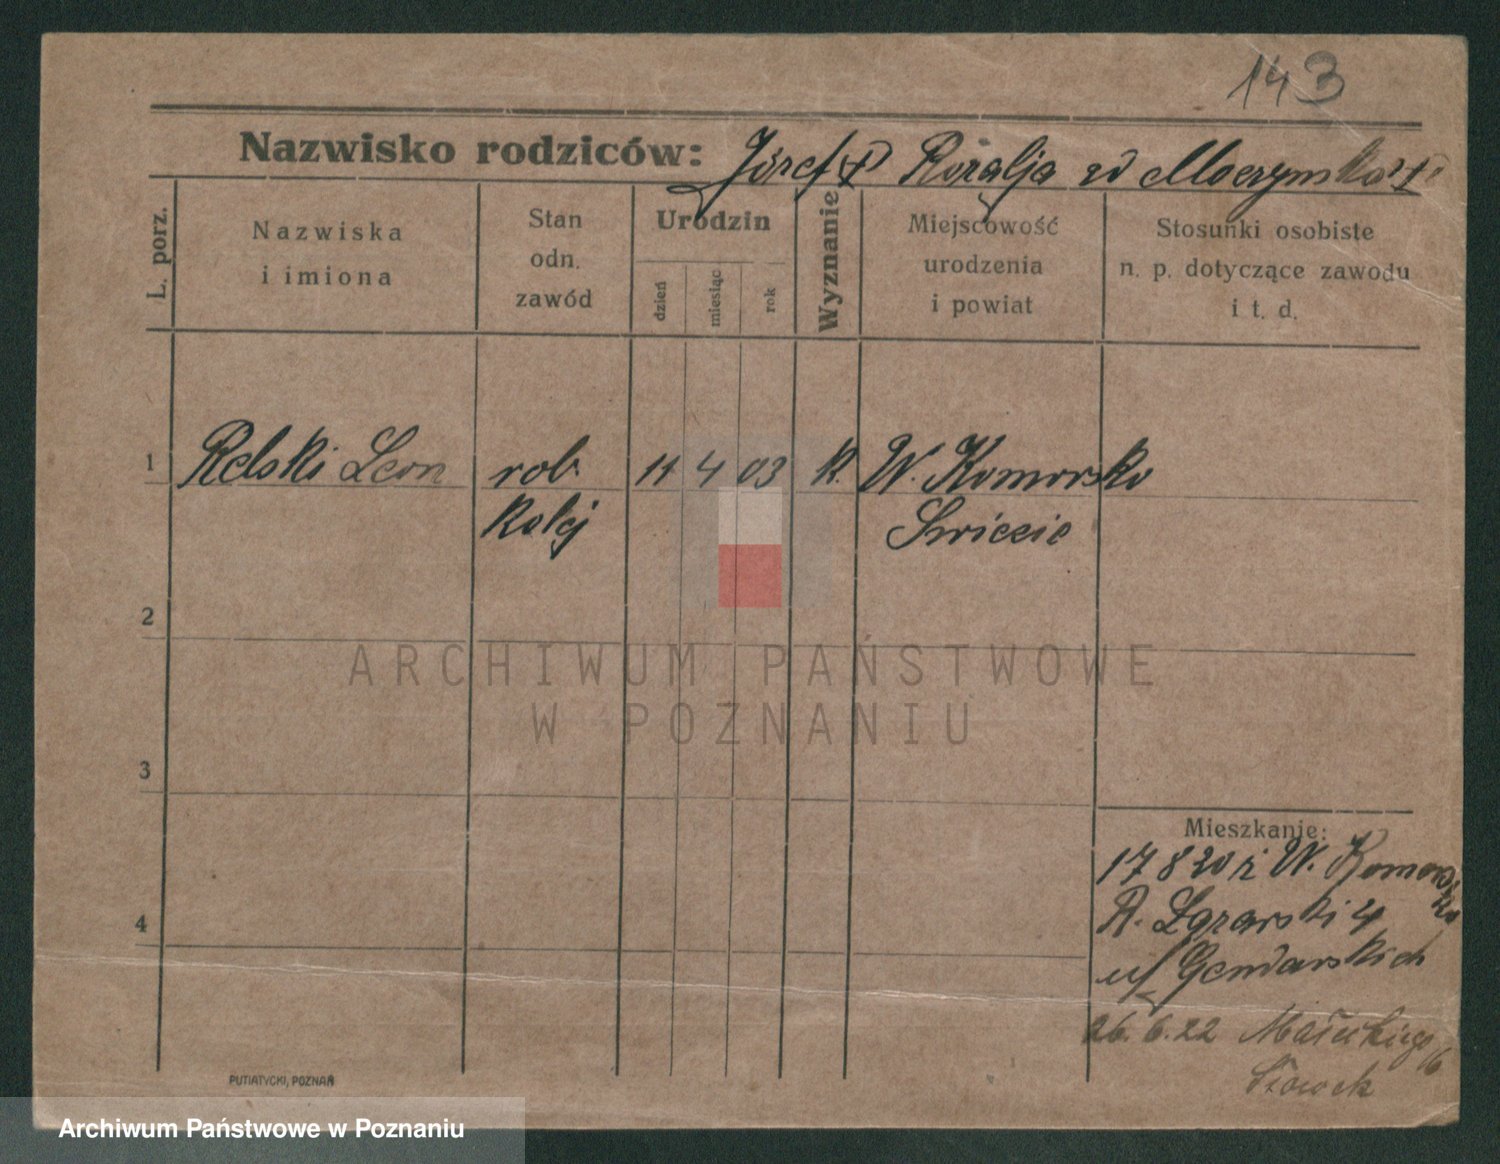 143
Nazwisko rodziców: Józef Rozalja zd Moczyńska
L. porz.
Nazwiska
i imiona
Stan
odn.
zawód
Urodzin
dzień
miesiąc
rok
Wyznanie
Miejscowość
urodzenia
i powiat
Stosunki osobiste
n. p. dotyczące zawodu
i t. d.
1 Relski Leon rob. 11 4 03 k. W. Komorsko
kolej Swiecie
2
3
4
Mieszkanie:
17 8 20 z W. Komorsko
R. 4
ul Gendarskich
26.6.22 Małeckiego
PUTIATYCKI, POZNAŃ
ARCHIWUM PAŃSTWOWE
W POZNANIU
Archiwum Państwowe w Poznaniu